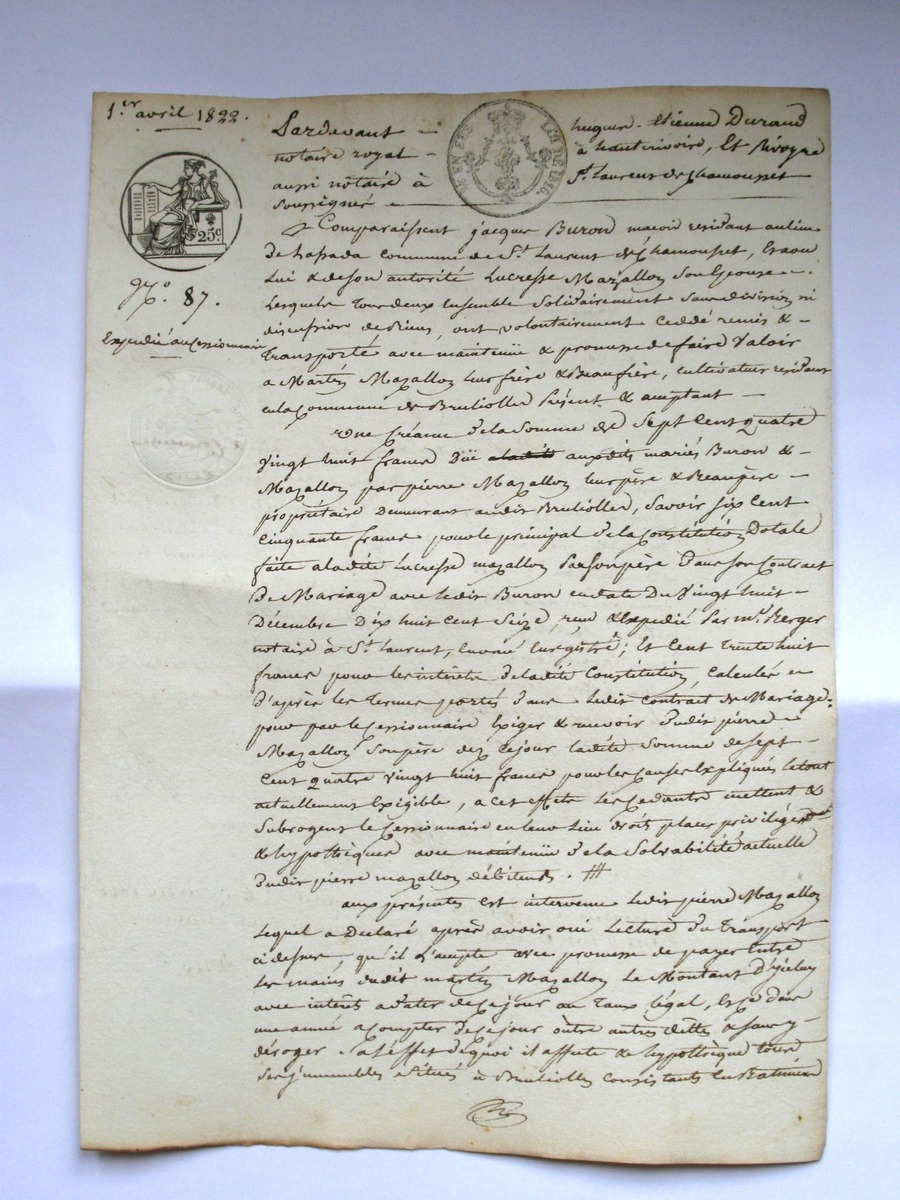 1.er avril 1822.
25c
N.o 87.
Expedié au Cessionnaire
Pardevant hugues-Etienne Durand
notaire royal à hauterivoire, Et Rivoyre
aussi notaire à St. Laurent de Chamousset
Soussignés
Comparaissent jacques Buron macon residant au lieu
de commune de St. Laurent de Chamousset, Et
Lui & de son autorité Lucresse Mazallon Son Epouse
Lesquels Tous deux Ensemble Solidairement Sans division ni
discussion de biens, ont volontairement Ceddé remis &
Transporté avec maintenüe & promesse de faire Valoir
a Martin Mazallon leur frère & Beaufrère, cultivateur residant
en la Commune de Brullioles présent & acceptant
Une Créance de la Somme de Sept Cent quatre
Vingt huit francs Düe auxdits mariés Buron &
Mazallon par pierre Mazallon leur père & Beaupère
propriétaire Demeurant audit Brullioles, Savoir Six Cent
Cinquante francs pour le principal de la Constitution Dotale
faite a ladite Lucresse mazallon Par son père Dans son Contract
De Mariage avec ledit Buron en date Du Vingt huit
Décembre Dix huit Cent Seize, reçu & Expedié Par m.e Berger
notaire à St Laurent, Enregistré; Et Cent Trente huit
francs pour les intérêts de ladite Constitution, Calculés
D'après les Termes portés Dans Ledit Contract de Mariage.
pour par le Cessionnaire Exiger & recevoir dudit pierre
Mazallon Son père dez Ce jour ladite Somme de Sept
Cent quatre Vingt huit francs pour les Causes Expliqués le tout
actuellement Exigible, a Cet effet Les Cedants mettent &
Subrogent le Cessionnaire en leur Lieu droits places privilèges
& hypothèques avec maintenüe de la Solvabilité actuelle
dudit pierre mazallon débiteur. #
aux présentes Est intervenu Ledit pierre Mazallon
Lequel a Declaré après avoir oüi Lecture du Transport
ci dessus, qu'il L'accepte avec promesse de payer Entre
Les mains dudit martin Mazallon Le Montant D'iceluy
avec intérêts a dater de Ce jour au Taux légal, Et ce dans
une année a compter de Ce jour outre autres dettes & sans y
déroger à l'effet de quoi il affecte & hypothèque tous
Ses immeubles Situés à Brullioles Consistants En Batiments